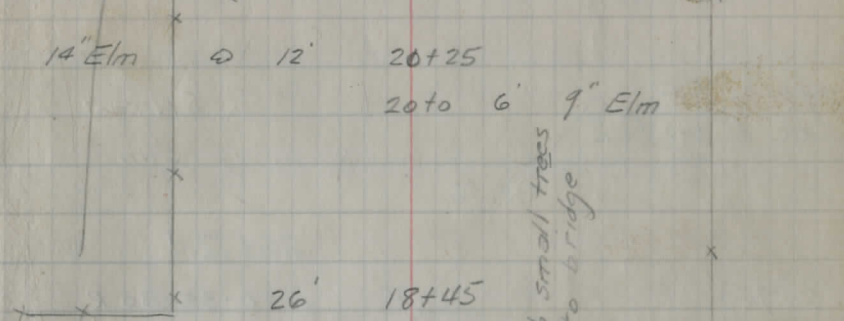 14" Elm 12' 20+25
20 to 6' 9" Elm
small trees
bridge
26' 18+45